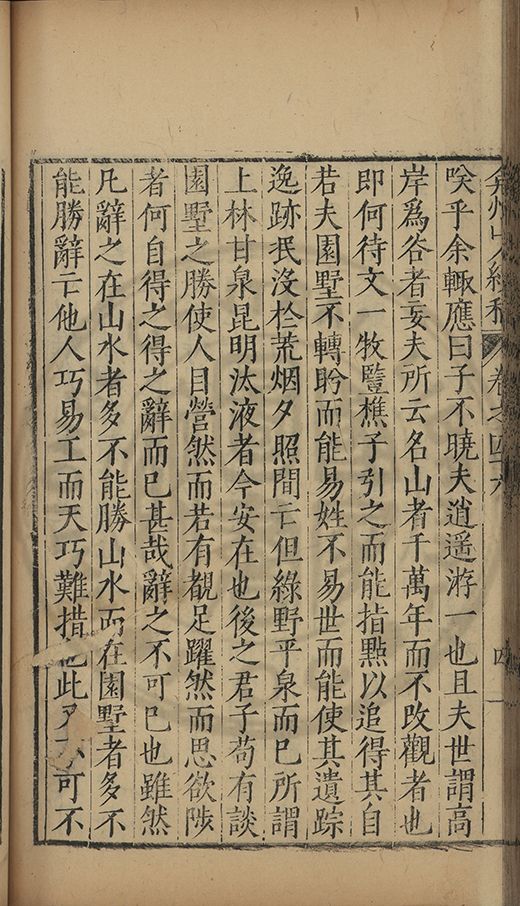 弇州山人續稿 卷之四十六 四
唉乎余輙應曰子不曉夫逍遥游一也且夫世謂高
岸爲谷者妄夫所云名山者千萬年而不改觀者也
即何待文一牧豎樵子引之而能指㸃以追得其自
若夫園墅不轉盻而能易姓不易世而能使其遺踪
逸跡泯没於荒烟夕照間亡但綠野平泉而已所謂
上林甘泉昆明汰液者今安在也後之君子苟有談
園墅之勝使人目營然而若有覩足躍然而思欲陟
者何自得之得之辭而已甚哉辭之不可已也雖然
凢辭之在山水者多不能勝山水而在園墅者多不
能勝辭亡他人巧易工而天巧難措也此又不可不